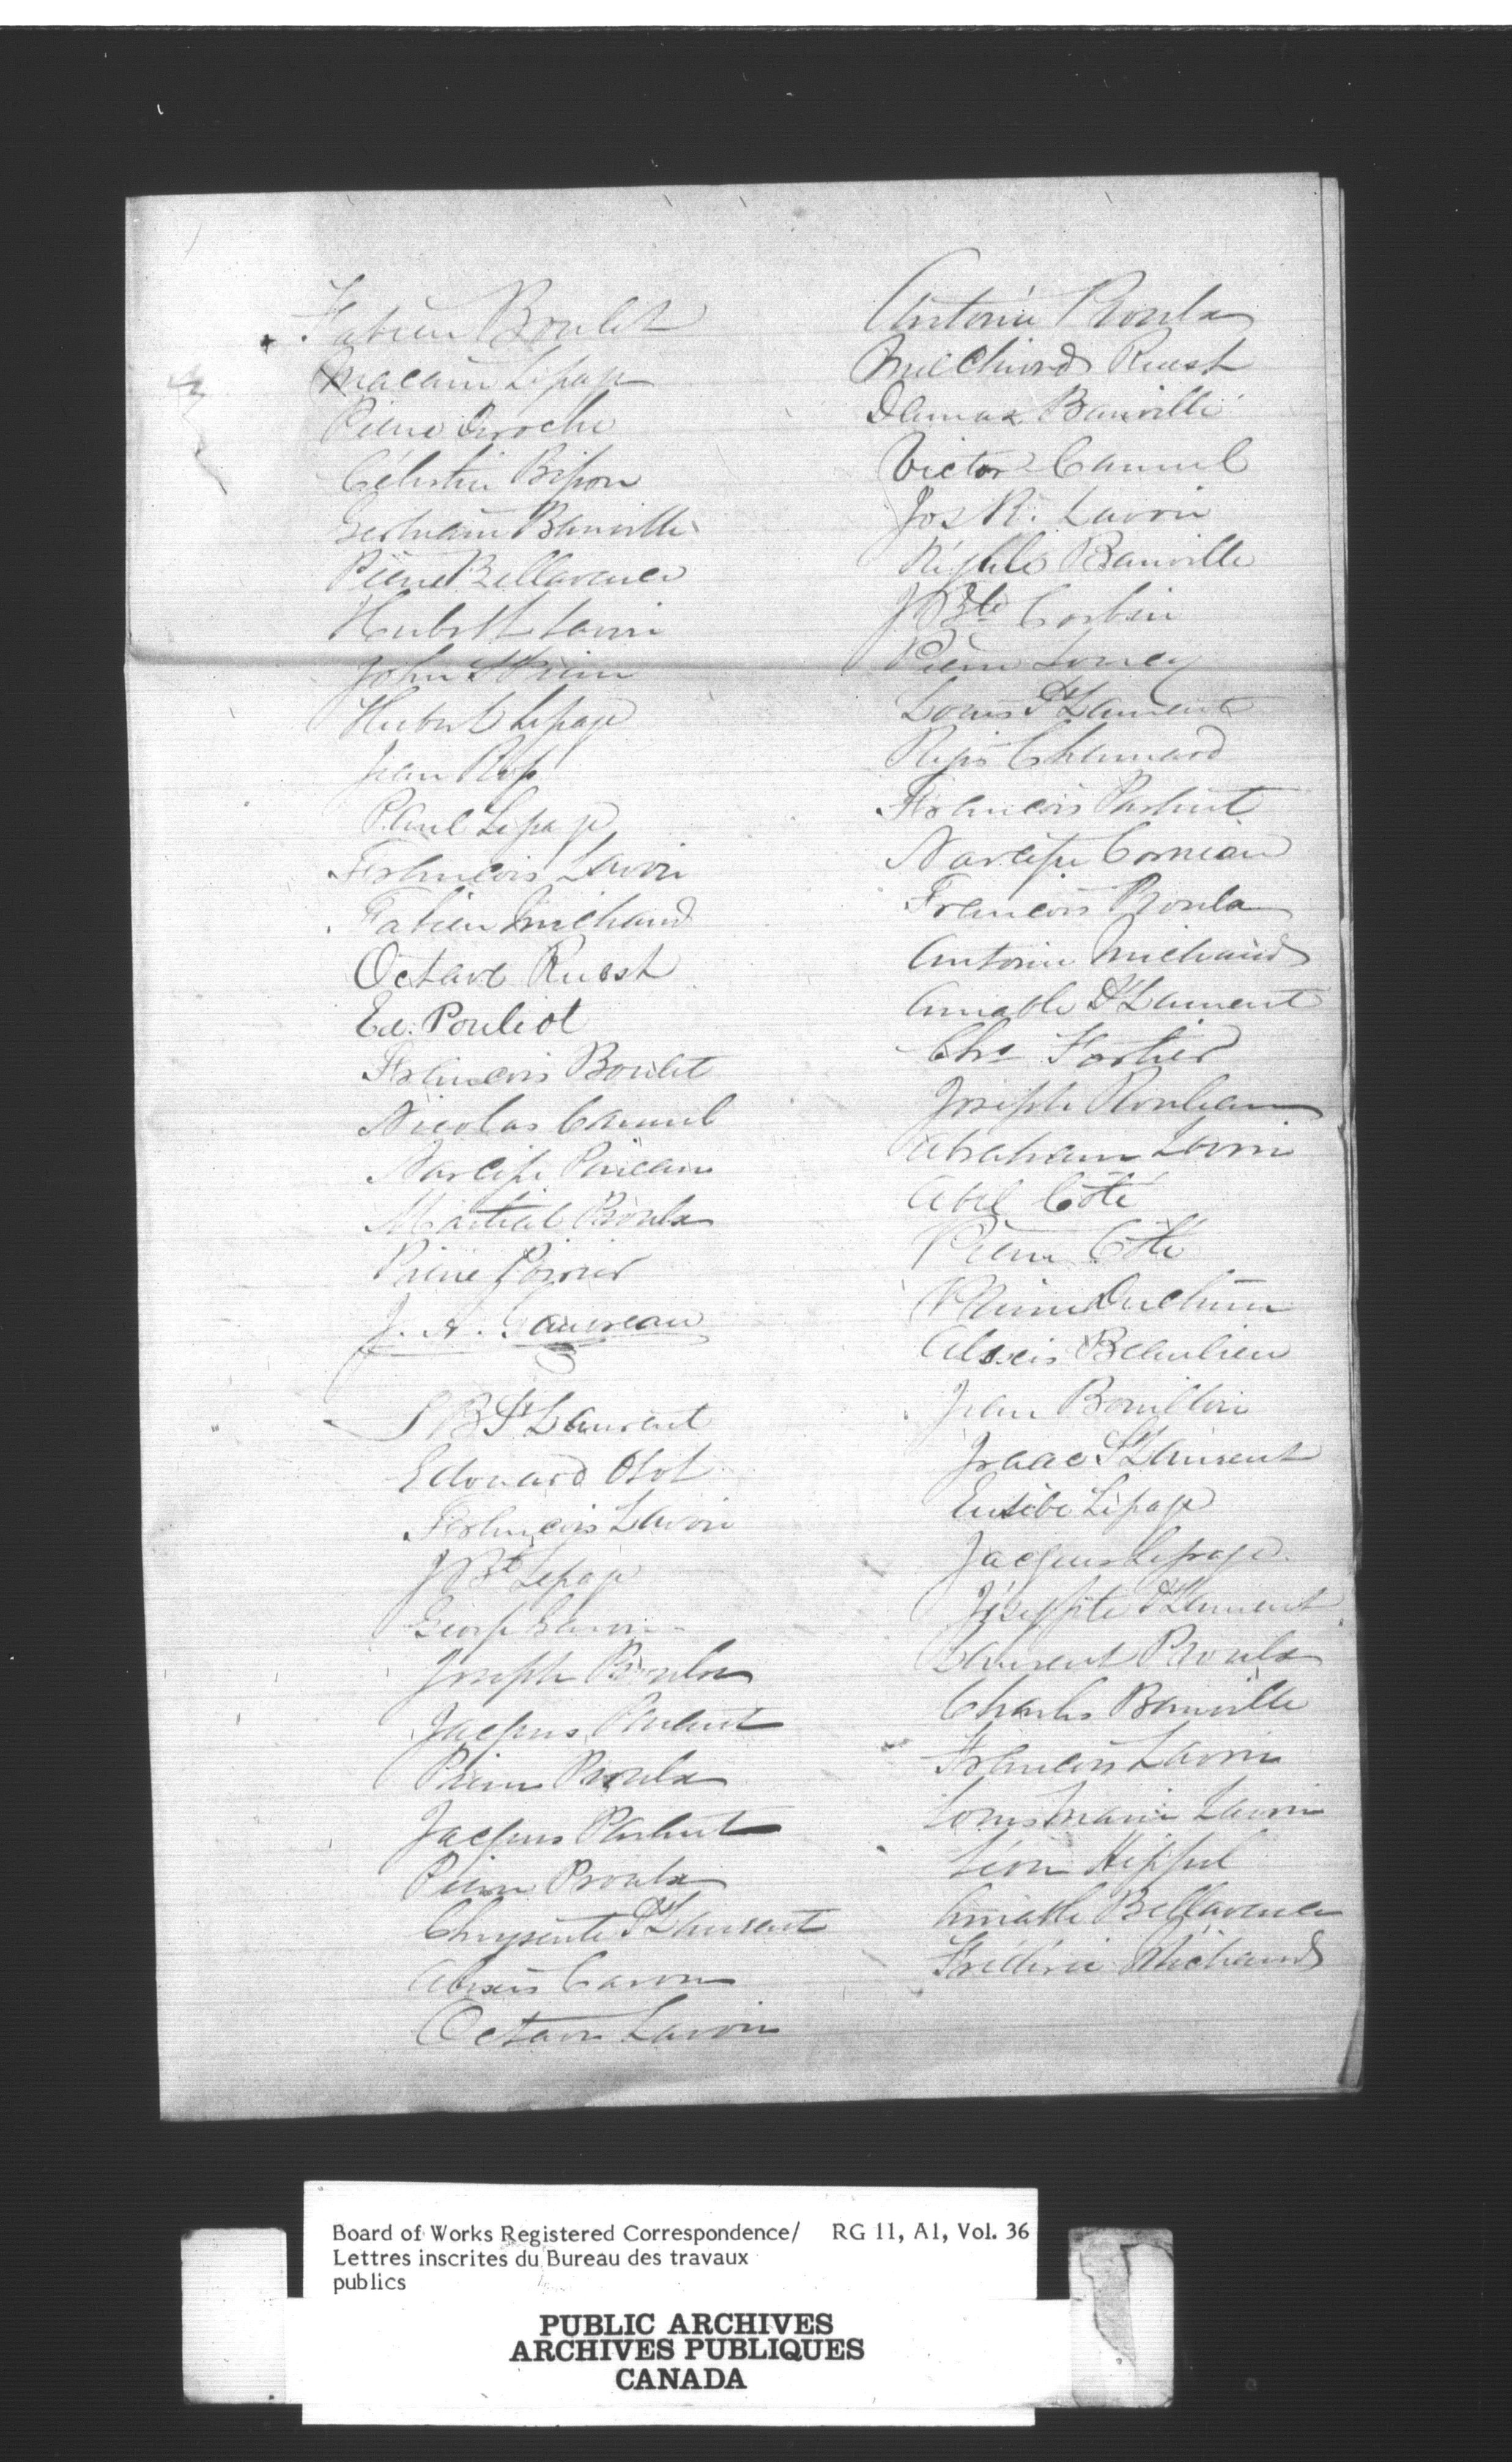 Fabien Boulet
Macaire Lepage
Pierre Deroche
Célestin Bisson
Germain Banville
Pierre Bellavance
Hubert Lavoie
John
Hubert Lepage
Jean Ross
Paul Lepage
François Lavoie
Fabien Michaud
Octave Ruest
Ed. Pouliot
François Boulet
Nicolas Canuel
Narcisse Pineau
Martial Proulx
Pierre Poirier
J. A. Gauvreau
J B St Laurent
Edouard Côté
François Lavoie
J Bte Lepage
George
Joseph Proulx
Jacques Parent
Pierre Proulx
Jacques Parent
Pierre Proulx
Chrysante St Laurent
Alexis Caron
Octave Lavoie
Antoine Proulx
Melchior Ruest
Damas Banville
Victor Canuel
Jos R. Lavoie
Banville
J Bte Corbin
Pierre
Louis St Laurent
Régis Chouinard
François Parent
Narcisse Corneau
François Proulx
Antoine Michaud
Amable St Laurent
Chs Fortier
Joseph Rouleau
Abraham Lavoie
Abel Côté
Pierre Côté
Duchêne
Alexis Beaulieu
Jean Bouillon
Isaac St Laurent
Eusèbe Lepage
Jacques Lepage.
St Laurent
Laurent Proulx
Charles Banville
François Lavoie
Louis Marie Lavoie
Léon Heppel
Amable Bellavance
Frédéric Michaud
Board of Works Registered Correspondence/ RG 11, A1, Vol. 36
Lettres inscrites du Bureau des travaux
publics
PUBLIC ARCHIVES
ARCHIVES PUBLIQUES
CANADA